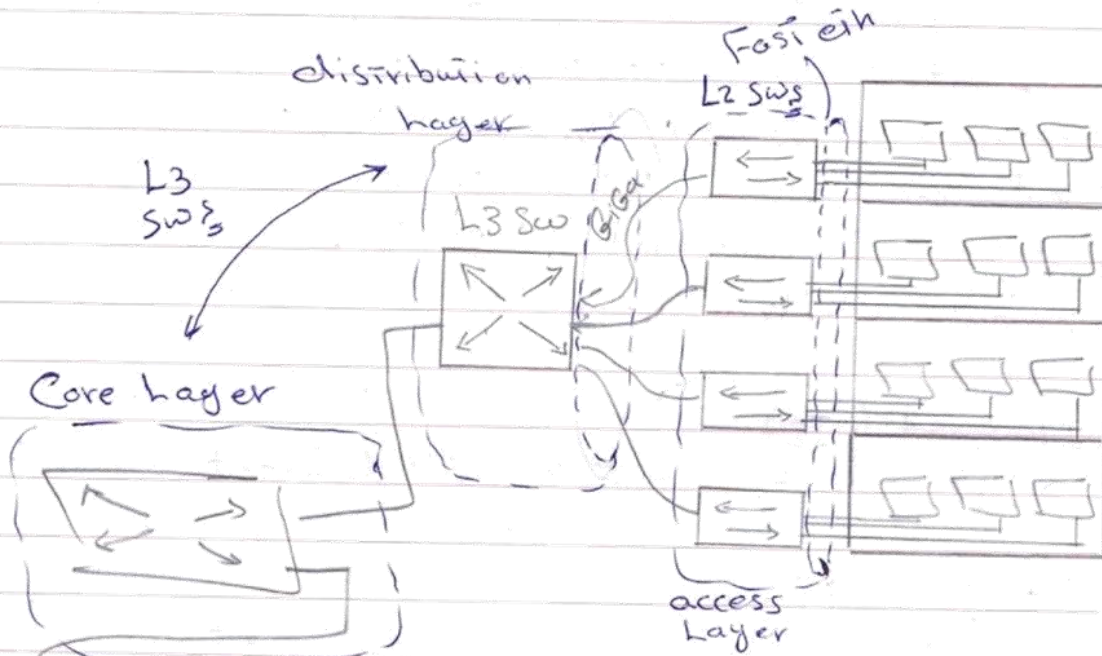 distribution
Layer
Fast eth
L2 sws
L3
sws
L3 SW
GiGa
Core Layer
access
Layer